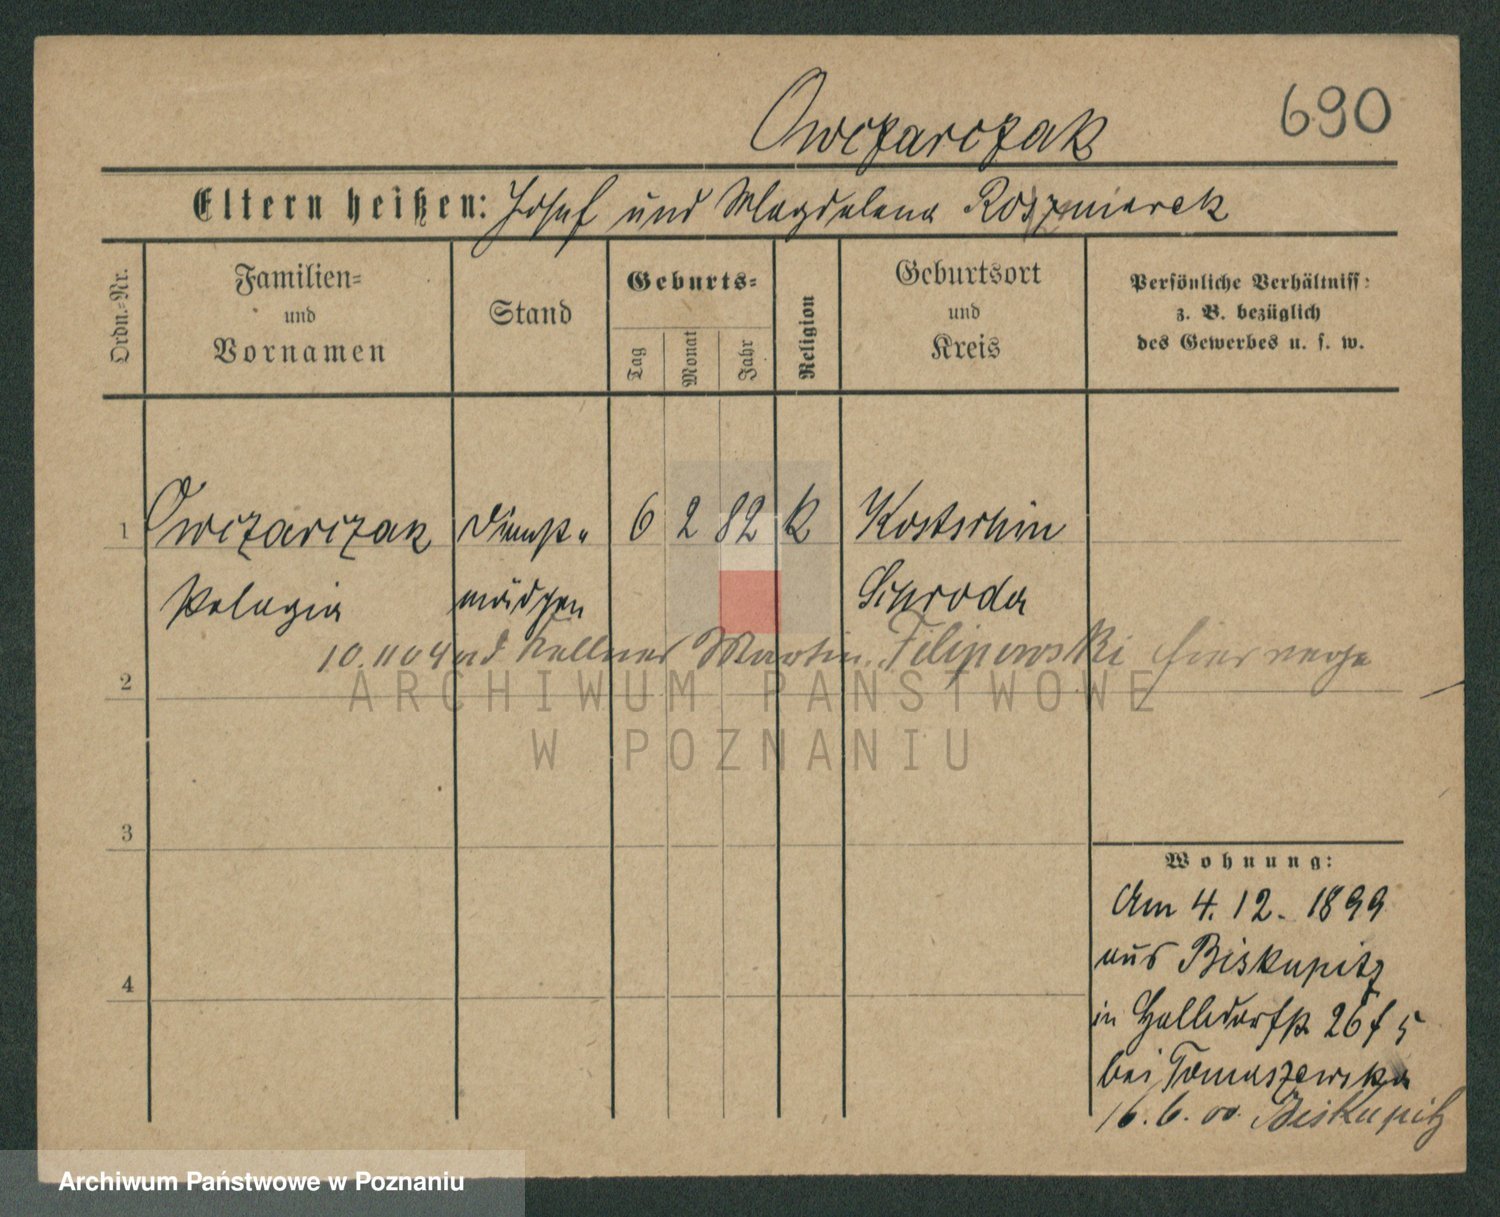 Owczarczak 690
Eltern heißen: Josef und Magdalena Roszmiarek
Ordn.-Nr.
Familien-
und
Vornamen
Stand
Geburts-
Tag
Monat
Jahr
Religion
Geburtsort
und
Kreis
Persönliche Verhältniss:
z. B. bezüglich
des Gewerbes u. s. w.
1 Owczarczak Dienst- 6 2 82 K Kostschin
Pelagia mädchen Schroda
10.11 04 Kellner Martin Filipowski hier
2
ARCHIWUM PAŃSTWOWE
W POZNANIU
3
4
Wohnung:
Am 4. 12. 1899
aus Biskupitz
in Halldorfstr 26
bei Tomaszewska
16. 6. 00. Biskupitz
Archiwum Państwowe w Poznaniu